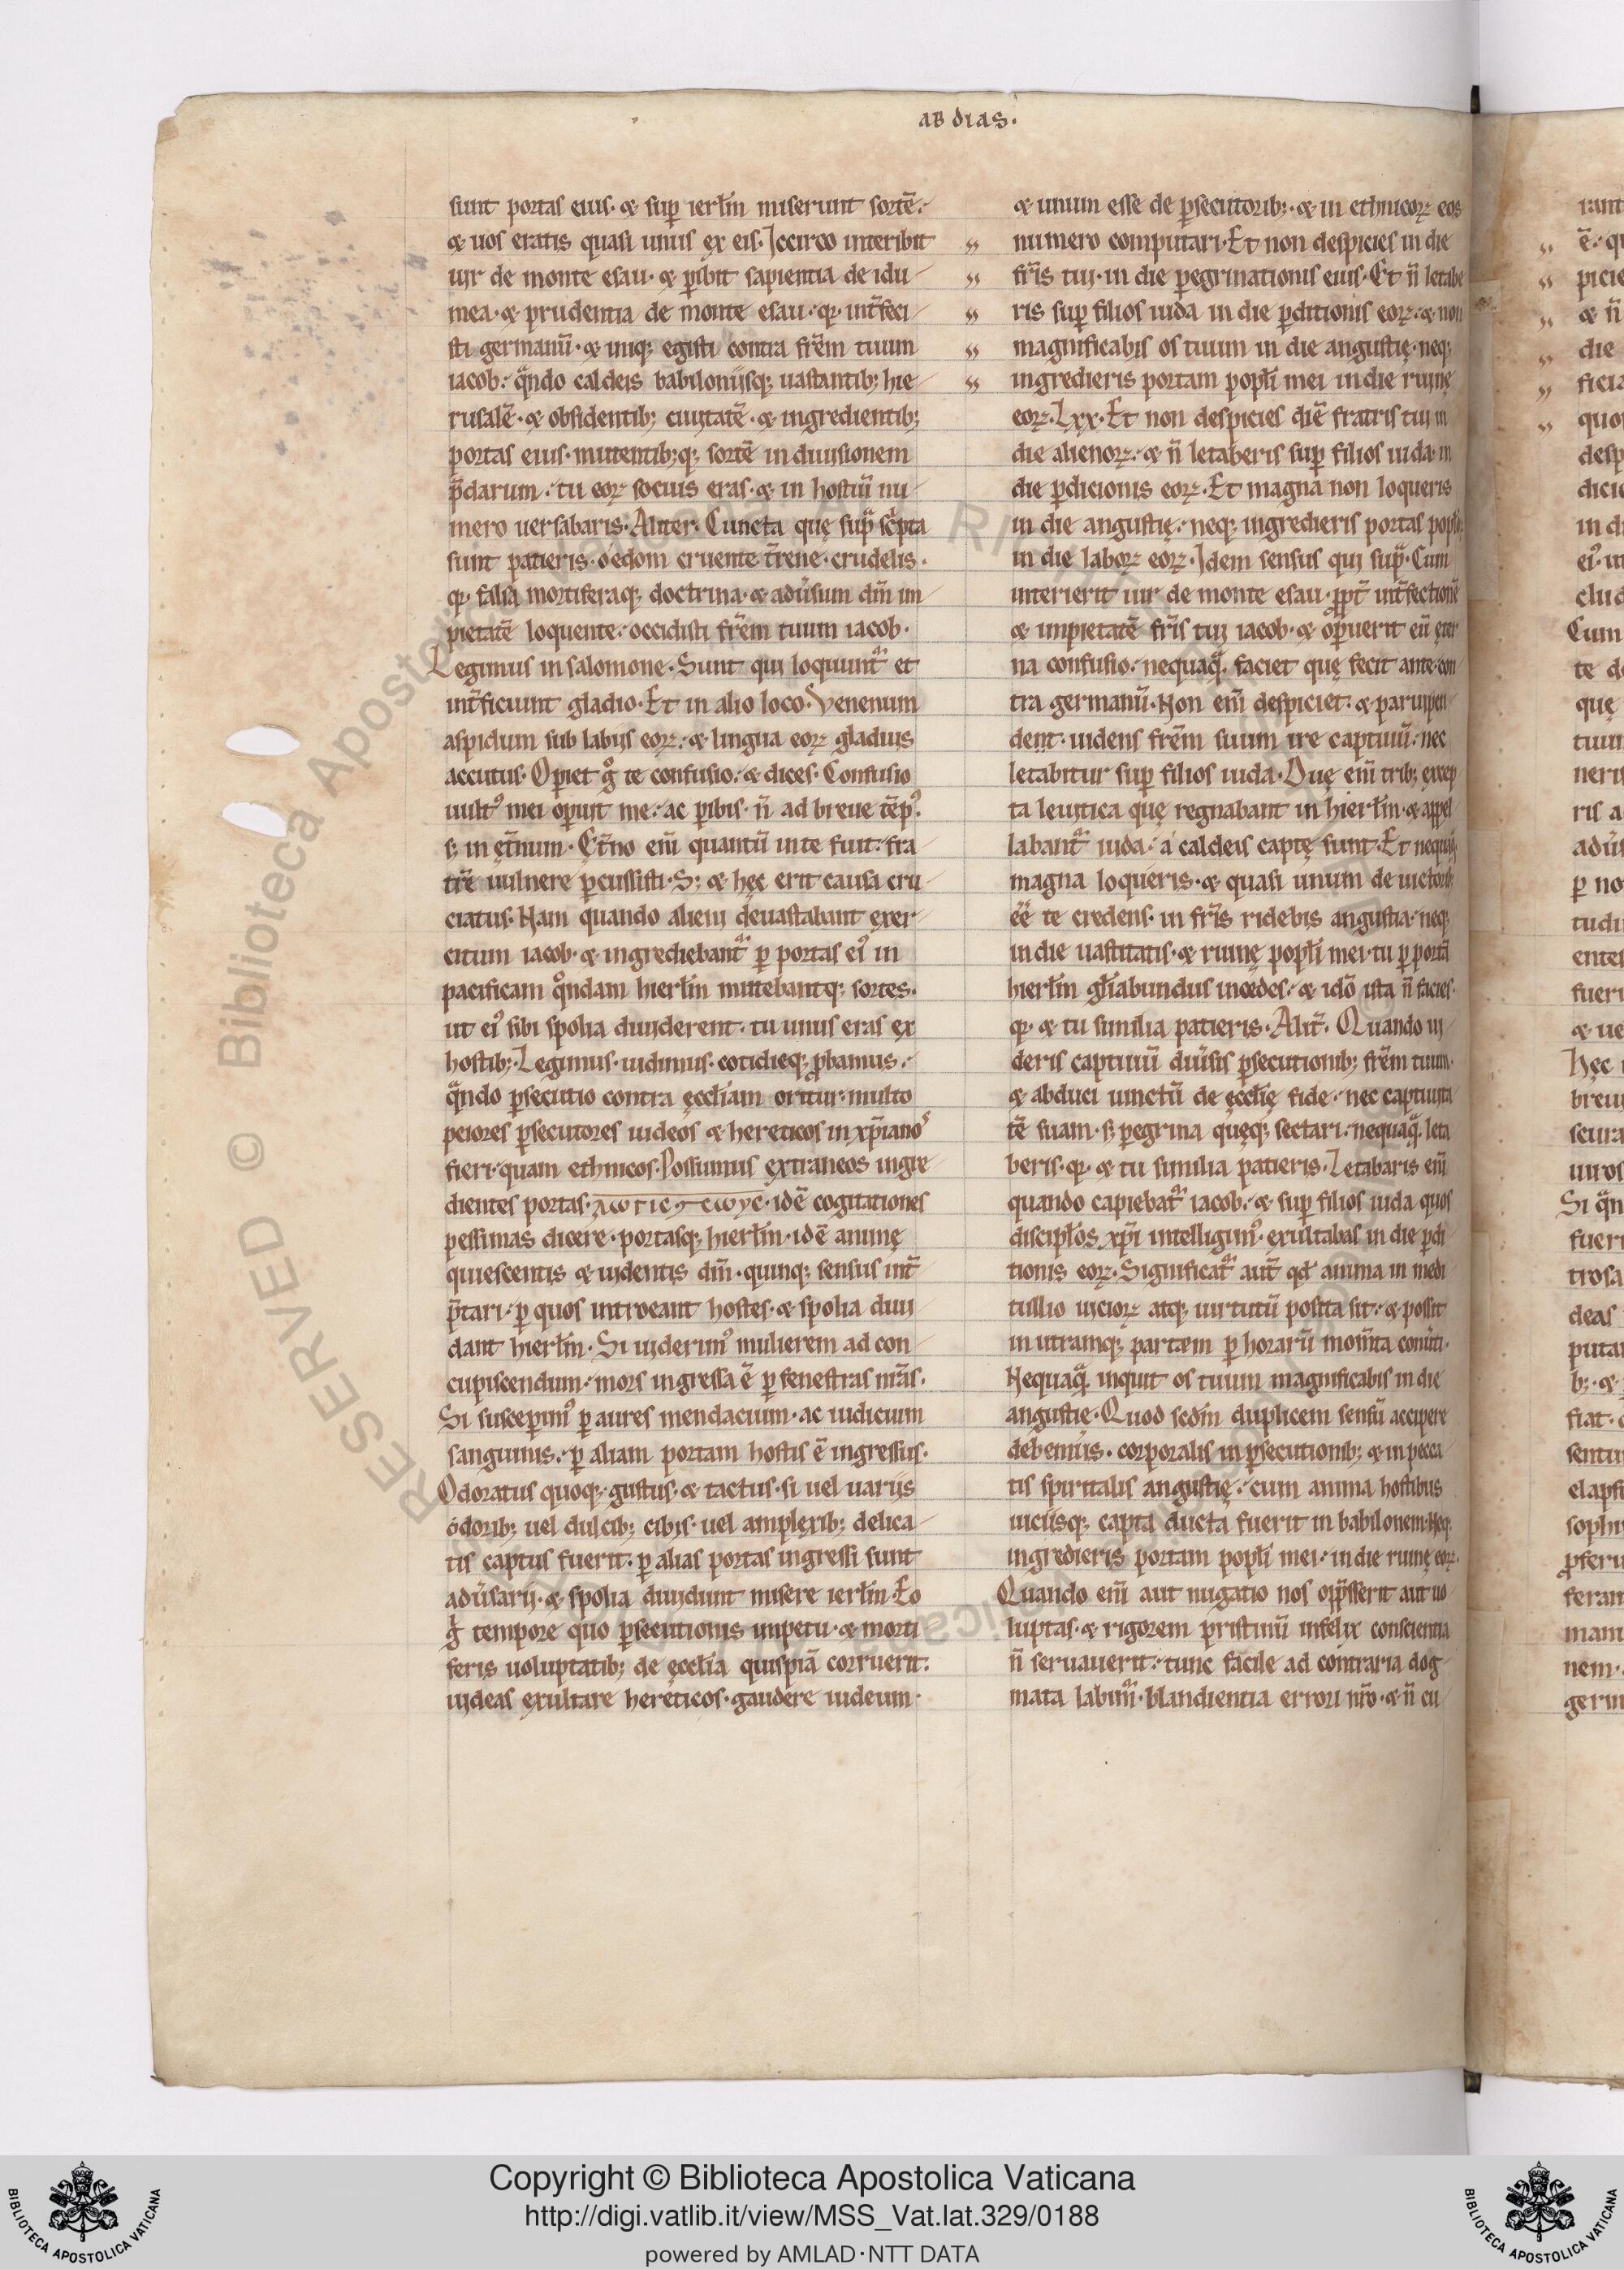 AB dias.
sunt portas eius. & sup̄ ierłm miserunt sortē.
& uos eratis quasi unus ex eis. Iccirco interibit
uir de monte esau. & p̱ibit sapientia de idu
mea. & prudentia de monte esau. qꝛ int̄feci
sti germanū. & iniqꝫ egisti contra fr̄em tuum
iacob. qͣndo caldeis babilonijsqꝫ uastantibꝫ hie
rusalē. & obsidentibꝫ ciuitatē. & ingredientibꝫ
portas eius. mittentibꝫqꝫ sortē in diuisionem
p̄darum. tu eoꝝ socius eras. & in hostiū nu
mero uersabaris. Aliter. Cuncta quę supͣ sc̄pta
sunt patieris. o edom cruente t̄rene. crudelis.
qꝛ falsa mortiferaqꝫ doctrina. & adūsum dm̄ im
pietatē loquente. occidisti fr̄em tuum iacob.
Legimus in salomone. Sunt qui loquunt᷑ et
int̄ficiunt gladio. Et in alio loco. Venenum
aspidum sub labijs eoꝝ. & lingua eoꝝ gladius
accutus. Op̱iet gͦ te confusio. & dices. Confusio
uultꝰ mei op̱uit me. ac p̱ibis. n̄ ad breue tēpꝰ.
sꝫ in ęt̄num. Et̄no eni᷑ quantū in te fuit. fra
trē uulnere p̱cussisti. Sꝫ & hęc erit causa cru
ciatus. Nam quando alieni deuastabant exer
citum iacob. & ingrediebant᷑ p̱ portas eiꝰ in
pacificam qͦndam hierłm mittebantqꝫ sortes.
ut eiꝰ sibi spolia diuiderent. tu unus eras ex
hostibꝫ. Legimus. uidimus. cotidieqꝫ ꝓbamus.
qͣndo p̱secutio contra ęcclīam oritur. multo
peiores p̱secutores iudeos & hereticos in xp̄ianoˢ
fieri. quam ethnicos. Possumus extraneos ingre
dientes portas. idē cogitationes
pessimas dicere. portasqꝫ hierłm. idē animę
quiescentis & uidentis dm̄. quinqꝫ sensus int̄
p̄tari. p̱ quos introeant hostes. & spolia diui
dant hierłm. Si uiderimꝰ mulierem ad con
cupiscendum. mors ingressa ē p̱ fenestras nr̄as.
Si suscep̱imꝰ p̱ aures mendacium. ac iudicium
sanguinis. p̱ aliam portam hostis ē ingressus.
Odoratus quoqꝫ. gustus. & tactus. si uel uarijs
odoribꝫ uel dulcibꝫ cibis. uel amplexibꝫ delica
tis captus fuerit. p̱ alias portas ingressi sunt
adūsarij. & spolia diuidunt misere ierłm. Eo
gͦ tempore quo p̱secutionis impetu. & morti
feris uoluptatibꝫ de ęcclīa quispiā corruerit.
uideas exultare hereticos. gaudere iudeum.
& unum esse de p̱secutoribꝫ. & in ethnicoꝝ eos
„ numero computari. Et non despicies in die
„ fr̄is tui. in die p̱egrinationis eius. Et n̄ letabe
„ ris sup̱ filios iuda in die p̱ditionis eoꝝ. & non
„ magnificabis os tuum in die angustię. neqꝫ
„ ingredieris portam popłi mei in die ruinę
eoꝝ. Lxx. Et non despicies diē fratris tui in
die alienoꝝ. & n̄ letaberis sup̱ filios iuda in
die p̱dicionis eoꝝ. Et magna non loqueris
in die angustię. neqꝫ ingredieris portas
in die laboꝝ eoꝝ. Idem sensus qui supͣ. Cum
interierit uir de monte esau. ꝓpt̄ int̄fectionē
& impietatē fr̄is tui iacob. & op̱uerit eū eter
na confusio. nequaqͣ faciet quę fecit ante con
tra germanū. Non eni᷑ despiciet. & paruipen
dent. uidens fr̄em suum ire captiuū. nec
letabitur sup̱ filios iuda. Duę eni᷑ tribꝫ excep
ta leuitica quę regnabant in hierłm. & appel
labant᷑ iuda. a caldeis captę sunt. Et
magna loqueris. & quasi unum de
eē te credens. in fr̄is ridebis angustia. neqꝫ
in die uastitatis. & ruinę popłi mei. tu p̱ portā
hierłm głiabundus incedes. & idō ista n̄ facies.
qꝛ & tu similia patieris. Alit̄. Quando ui
deris captiuū diūsis p̱secutionibꝫ fr̄em tuum.
& abduci uinctū de ęcclīę fide. nec captiuita
tē suam. sꝫ p̱egrina quęqꝫ sectari. nequaqͣ leta
beris. qꝛ & tu similia patieris. Letabaris eni᷑
quando capiebat᷑ iacob. & sup̱ filios iuda quos
discipłos xp̄i intelligimꝰ. exultabas in die p̱di
tionis eoꝝ. Significat᷑ aut̄ qd̄ anima in medi
tullio uicioꝝ atqꝫ uirtutū posita sit. & possit
in utramqꝫ partem p̱ horarū mom̄ta conūti.
Nequaqͣ inquit os tuum magnificabis in die
angustię. Quod scdm̄ duplicem sensū accipere
debemus. corporalis in p̱secutionibꝫ & in pecca
tis spiritalis angustię. cum anima hostibus
uicijsqꝫ capta ducta fuerit in babilonem. Neqꝫ
ingredieris portam popłi mei. in die ruinę eoꝝ.
Quando eni᷑ aut nugatio nos opp̄sserit aut uo
luptas. & rigorem pristinū infelix conscientia
n̄ seruauerit. tunc facile ad contraria dog
mata labimͬ. blandientia errori nr̄o. & n̄ cū
Copyright © Biblioteca Apostolica Vaticana
http://digi.vatlib.it/view/MSS_Vat.lat.329/0188
powered by AMLAD·NTT DATA
BIBLIOTECA APOSTOLICA VATICANA
BIBLIOTECA APOSTOLICA VATICANA